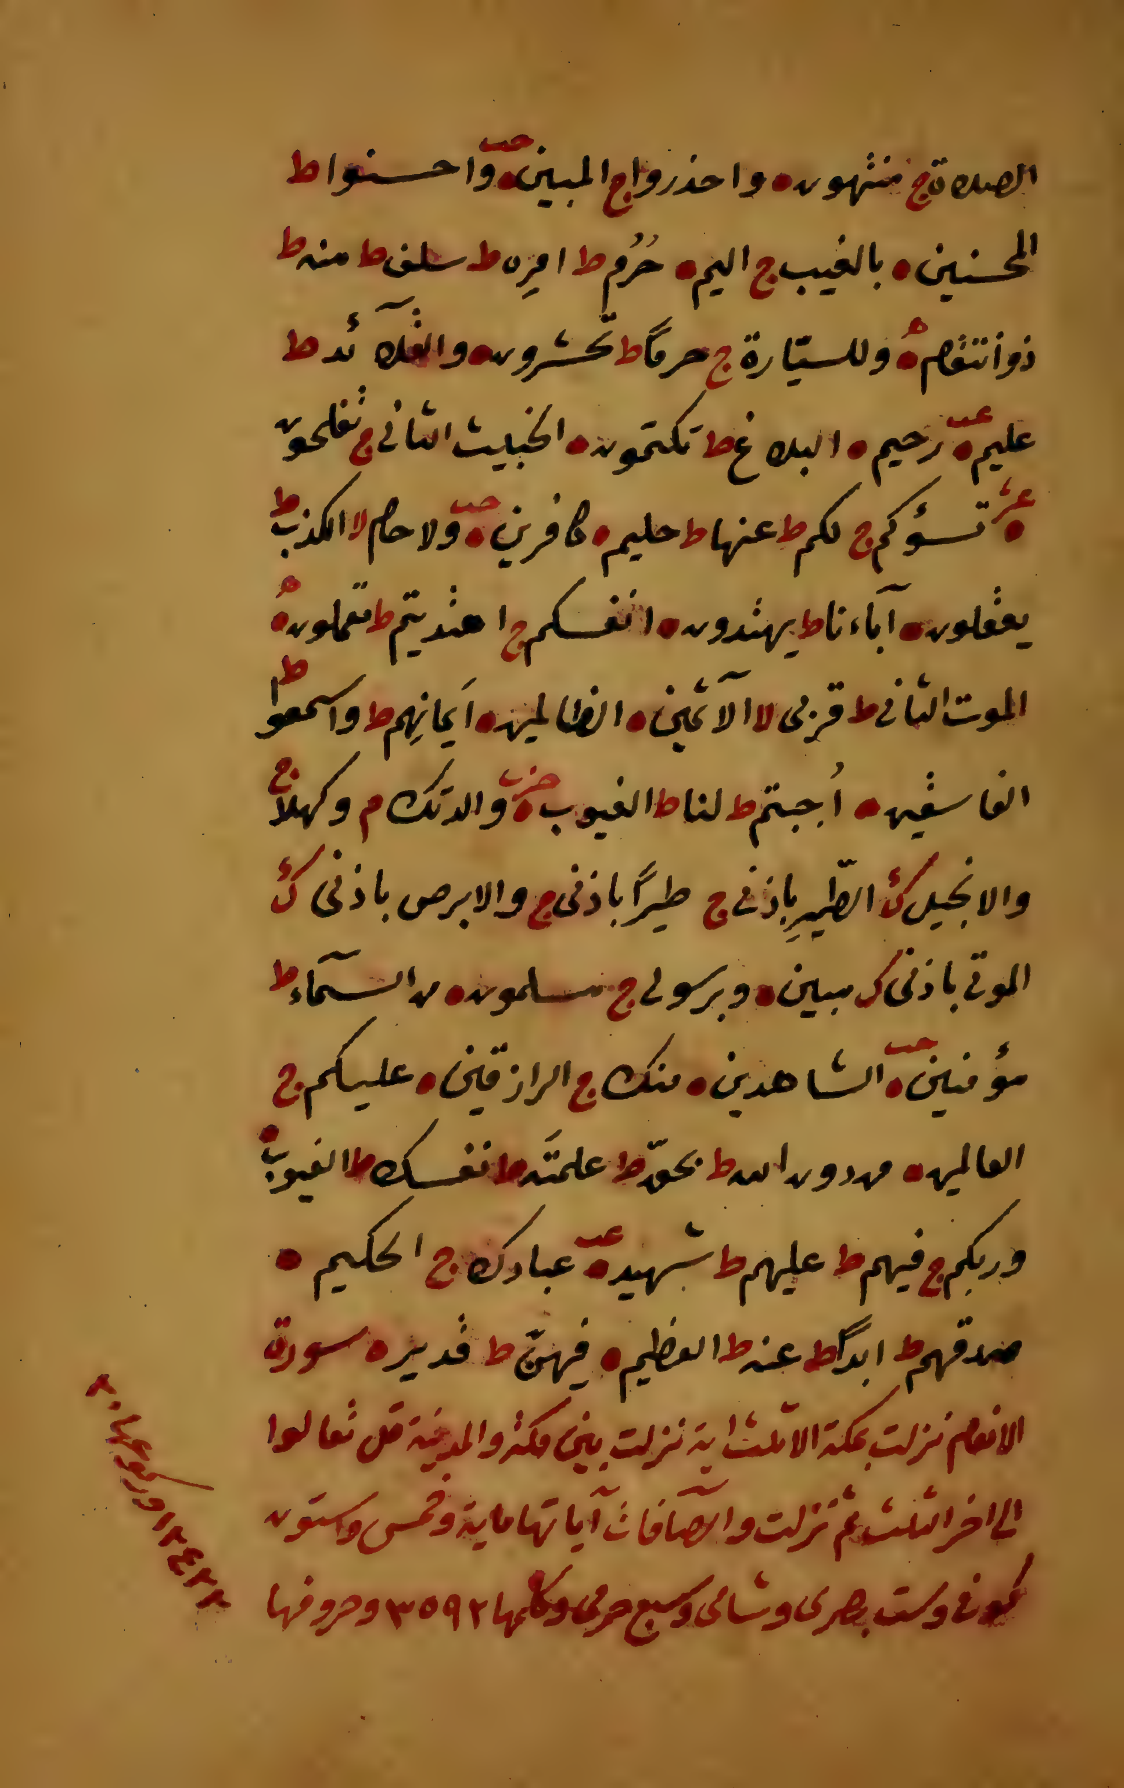 الصلاة ج منتهون ه واحذروا ج المبين ه حب واحسنوا ط
المحسنين ه بالغيب ج اليم ه حُرُم ط امره ط سلف ط منه ط
ذوانتقام ه وللسيّارة ج حرمًا ط تحشرون ه والقلآئد ط
عليم ه عب رحيم ه البلاغ ط تكتمون ه الخبيث الثانى ج تفلحون
ه عشر تسؤكم ج لكم ط عنها ط حليم ه كافرين ه حب ولا حام لا الكذب ط
يعقلون ه آباءنا ط يهتدون ه انفسكم ج اهتديتم ط تعملون ه
الموت الثانى ط قربى لا الآثمين ه الظالمين ه ايمانهم ط واسمعوا ط
الفاسقين ه اُجبتم ط لنا ط الغيوب ه والدتك م وكهلاً ج
والانجيل ك الطّيرِ باِذنى ج طيرًا باذنى ج والابرص باذنى ك
الموتى باذنى ك مبين ه وبرسولى ج مسلمون ه من السمآء ط
مؤمنين ه حب الشاهدين ه منك ج الرازقين ه عليكم ج
العالمين ه من دون الله ط بحقّ ط علمتَه ط نفسك ط الغيوب ه
وربكم ج فيهم ط عليهم ط شهيد ه عب عبادك ج الحكيم ه
صدقهم ط ابدًا ط عنه ط العظيم ه فيهنّ ط قدير ه سورة
الانعام نزلت بمكة الا ثلث اية نزلت بين مكة والمدينة قل تعالوا
الى اخر الثلث ثم نزلت والصآفات آياتها ماية وخمس وستون
كوفى وست بصرى وشامى وسبع حرمى وكلمها ٣٥٩٢ وحروفها
١٢٤٢٢ وركوعها ٢٠